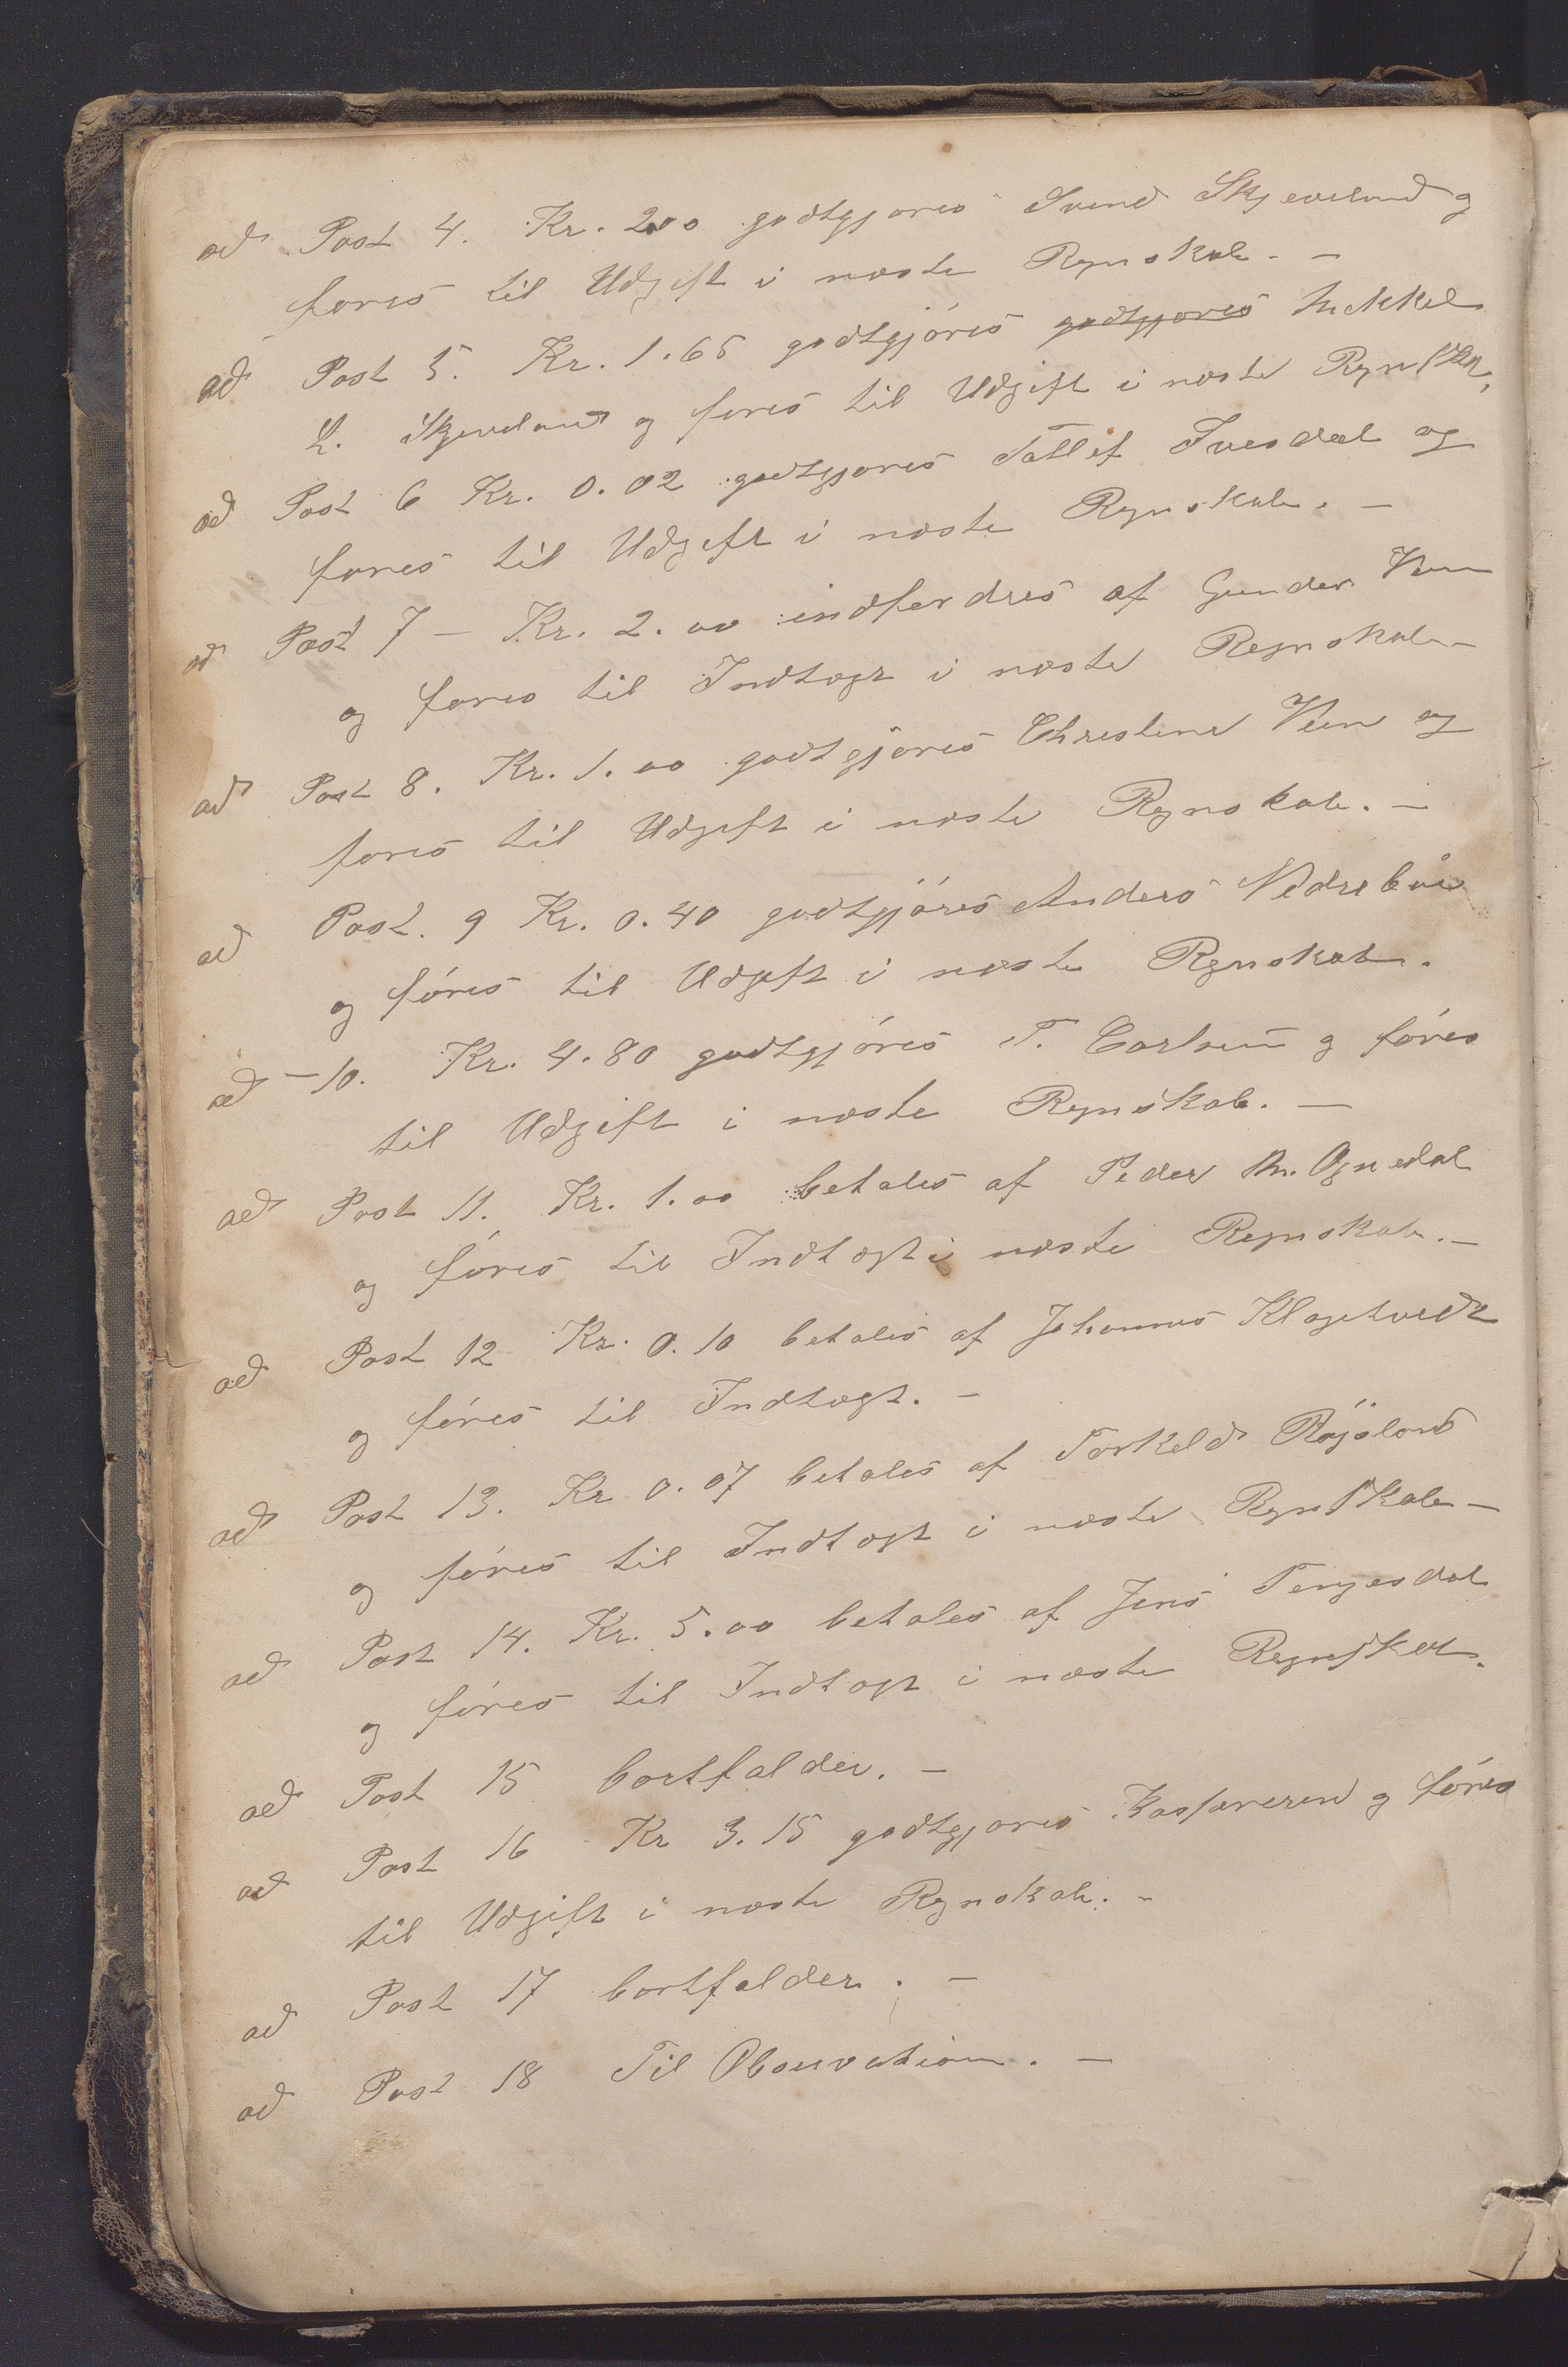 ad Post 4. Kr. 2.00 godtgjøres Svend Skjæveland og
føres til Udgift i næste Regnskab. -
ad Post 5. Kr. 1.65 godtgjøres godtgjøres Mikkel
L. Skjævland og føres til Udgift i næste Regnskab,
ad Post 6 Kr. 0.02 godtgjøres Tollef Ivesdal og
føres til Udgift i næste Regnskab. -
ad Post 7 - Kr. 2.00 indfordres af Gunder Veen
og føres til Indtægt i næste Regnskab -
ad Post 8. Kr. 1.00 godtgjøres Christine Veen og
føres til Udgift i næste Regnskab. -
ad Post. 9 Kr. 0.40 godtgjøres Anders Nedrebøe
og føres til Udgift i næste Regnskab.
ad - 10. Kr. 4.80 godtgjøres T. Carlsen og føres
til Udgift i næste Regnskab. -
ad Post 11. Kr. 1.00 betales af Peder M. Ognedal
og føres til Indtægt i næste Regnskab. -
ad Post 12 Kr. 0.10 betales af Johannes Klagetvedt
og føres til Indtægt. -
ad Post 13. Kr 0.07 betales af Torkeld Røjsland
og føres til Indtægt i næste Regnskab -
ad Post 14. Kr. 5.00 betales af Jens Tengesdal
og føres til Indtægt i næste Regnskab.
ad Post 15 bortfalder. -
ad Post 16 Kr 3.15 godtgjøres Kaspersen og føres
til Udgift i næste Regnskab. -
ad Post 17 bortfalder. -
ad Post 18 Til Observation. -